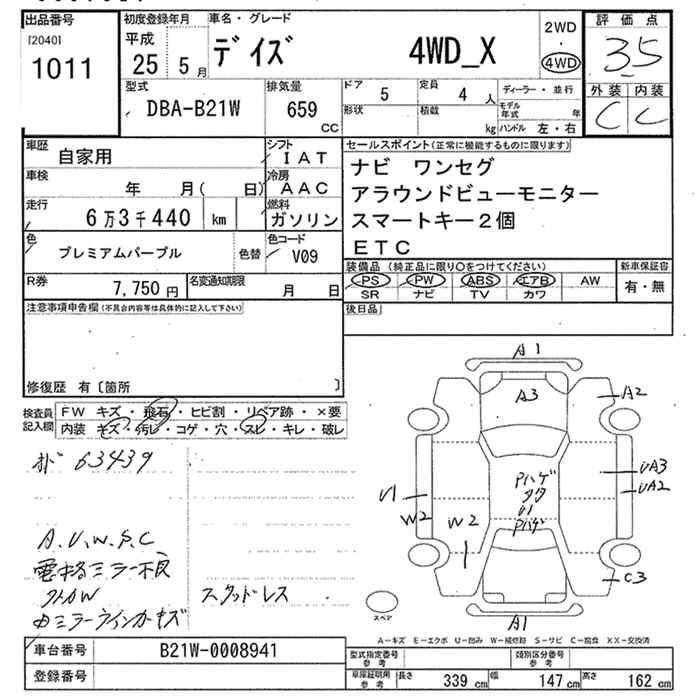 出品番号
[2040]
1011
初度登録年月
平成
25 5月
車名・グレード
デイズ 4WD_X
2WD
・
4WD
評価点
3.5
外装 内装
C C
型式
DBA-B21W
排気量
659
CC
ドア 5
定員 4 人
形状
積載 kg
ディーラー・並行
モデル年式 年
ハンドル 左・右
車歴 自家用
シフト IAT
車検 年 月( 日)
冷房 AAC
走行 6万3千440 km
燃料 ガソリン
色 プレミアムパープル 色替
色コード V09
R券 7,750円
名変通知期限 月 日
セールスポイント(正常に機能するものに限ります)
ナビ ワンセグ
アラウンドビューモニター
スマートキー2個
ETC
装備品(純正品に限り○をつけてください)
PS PW ABS エアB AW
SR ナビ TV カワ
新車保証書
有・無
注意事項申告欄(不具合内容等は具体的に記入して下さい)
後日品
修復歴 有〔箇所 〕
検査員記入欄
FW キズ・飛石・ヒビ割・リペア跡・×要
内装 キズ・汚レ・コゲ・穴・スレ・キレ・破レ
63439
A.U.W.S.C
電格ミラー不良
スタッドレス
ミラーウインカーキズ
A1
A3
A2
UA3
UA2
U1
W2
W2
Pハゲ
U1
Pハゲ
C3
A1
スペア
A-キズ E-エクボ U-凹み W-補修跡 S-サビ C-腐食 XX-交換済
車台番号 B21W-0008941
登録番号
型式指定番号 参考
類別区分番号 参考
車庫証明用 参考
長さ 339 cm
幅 147 cm
高さ 162 cm